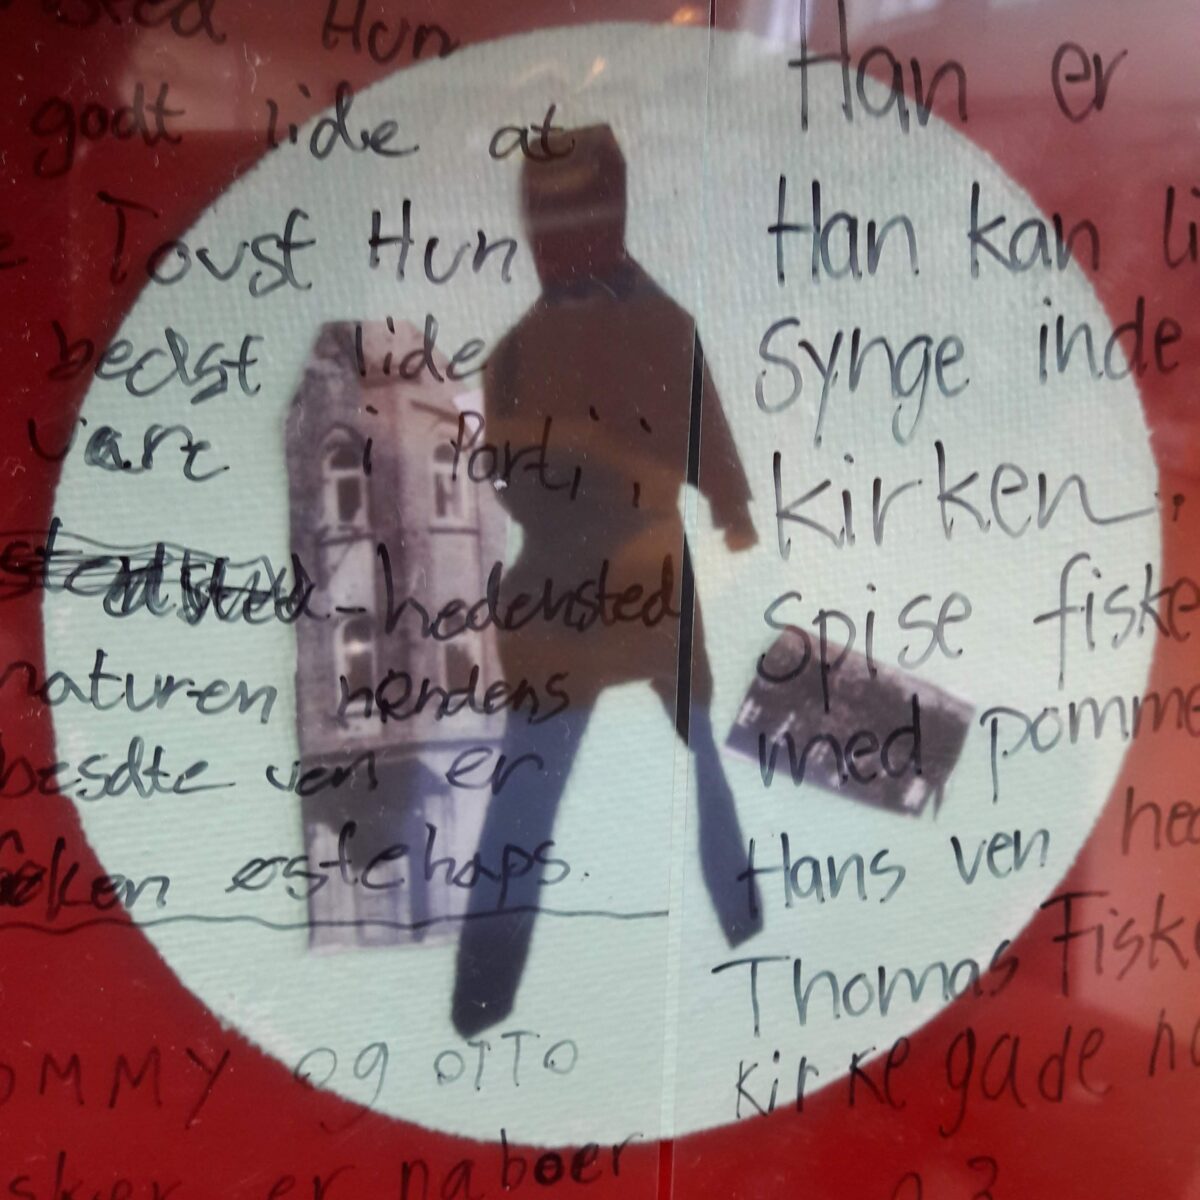 Hun
godt lide at
Tovst Hun
bedst lide
vare i Parti,
-hedensted
naturen hendens
besdte ven er
østehaps.
OMMY og OTTO
er naboer
Han er
Han kan li
synge inde
kirken.
spise fiske
med pomme
Hans ven he
Thomas Fisk
kirke gade